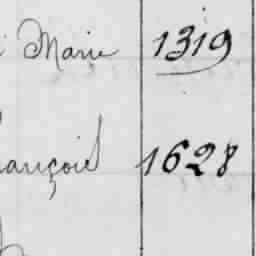 Marie 1319
ançois 1628